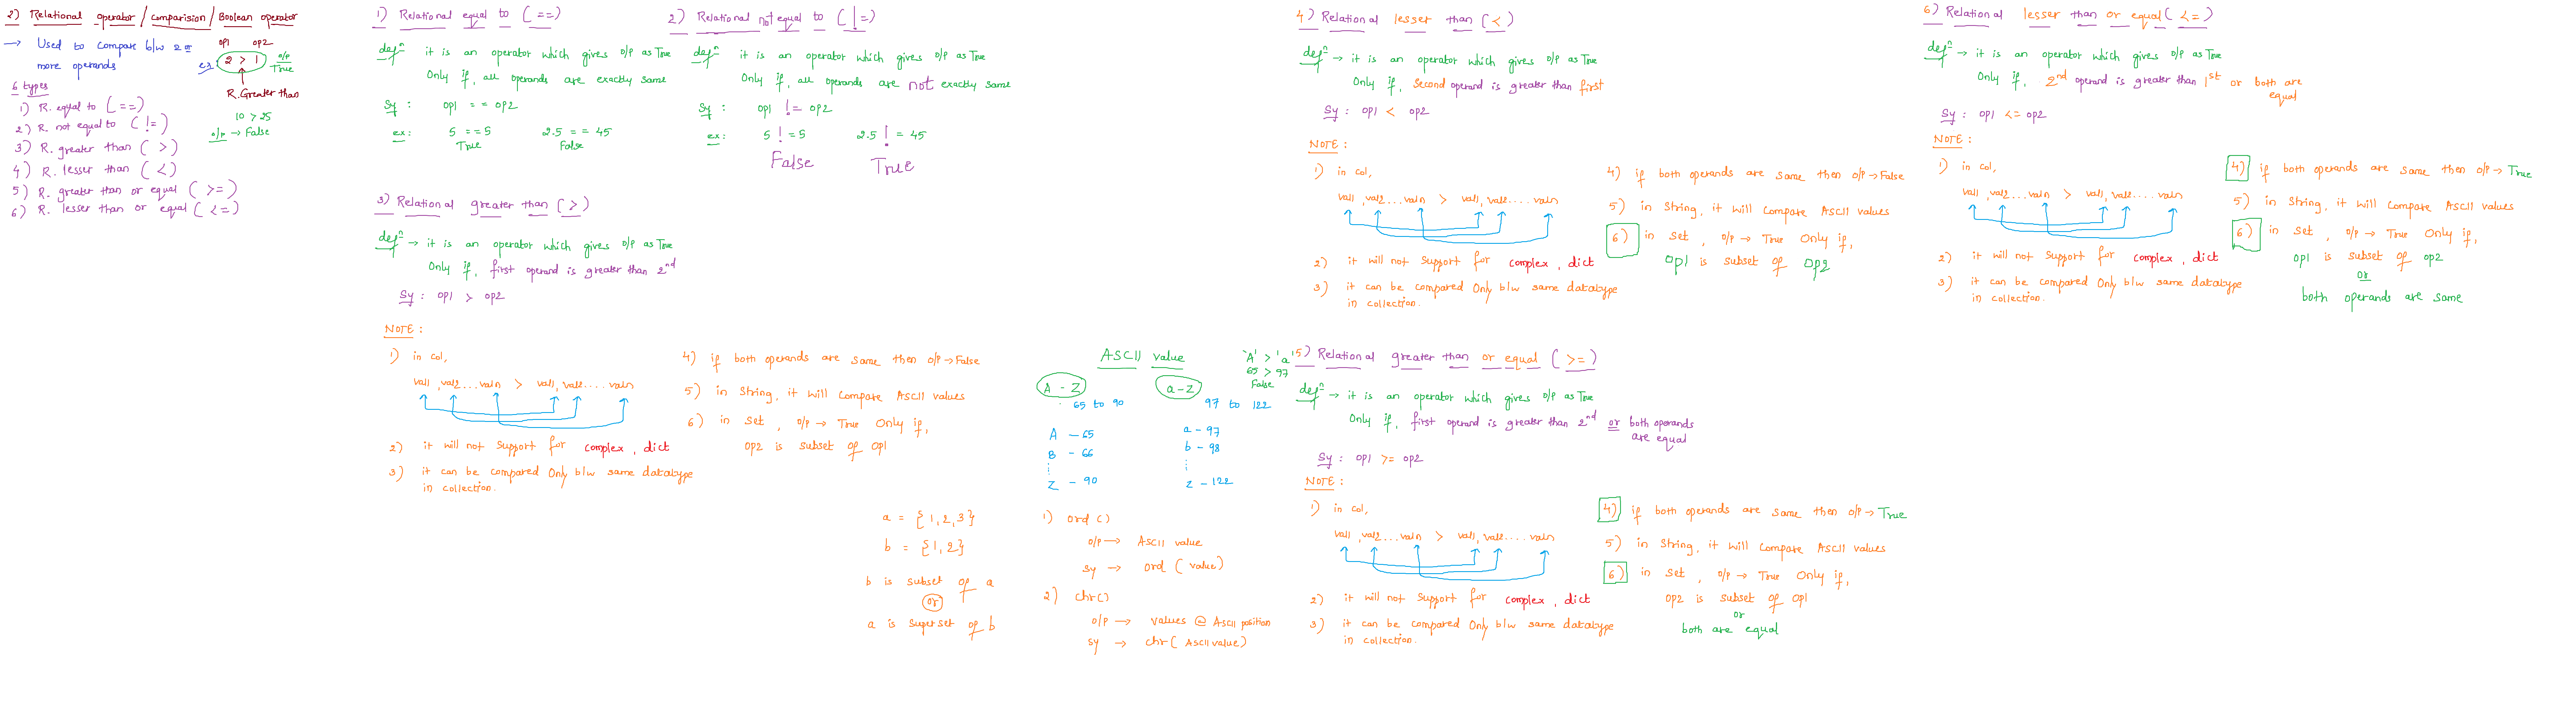 2) Relational operator / Comparision / Boolean operator
→ Used to compare b/w 2 or
more operands
op1 op2
ex: 2 > 1 o/p True
R.Greater than
10 > 25
o/p → False
6 types
1) R. equal to (==)
2) R. not equal to (!=)
3) R. greater than (>)
4) R. lesser than (<)
5) R. greater than or equal (>=)
6) R. lesser than or equal (<=)
1) Relational equal to (==)
defn it is an operator which gives o/p as True
Only if, all operands are exactly same
Sy : op1 == op2
ex: 5 ==5 2.5 == 45
True False
2) Relational not equal to (!=)
defn it is an operator which gives o/p as True
Only if, all operands are not exactly same
Sy : op1 != op2
ex: 5 != 5 2.5 != 45
False True
3) Relational greater than (>)
defn → it is an operator which gives o/p as True
Only if, first operand is greater than 2nd
Sy : op1 > op2
NOTE :
1) in col,
val1, val2...valn > val1, val2....valn
2) it will not support for complex, dict
3) it can be compared Only b/w same datatype
in collection.
4) if both operands are same then o/p→False
5) in String, it will compare ASCII values
6) in set, o/p → True Only if,
op2 is subset of op1
a = {1,2,3}
b = {1,2}
b is subset of a
or
a is superset of b
ASCII value
'A' > 'a'
65 > 97
False
A - Z a-z
65 to 90 97 to 122
A - 65 a - 97
B - 66 b - 98
Z - 90 z - 122
1) ord()
o/p → ASCII value
sy → ord(value)
2) chr()
o/p → values @ ASCII position
sy → chr(ASCII value)
4) Relational lesser than (<)
defn → it is an operator which gives o/p as True
Only if, Second operand is greater than first
Sy : op1 < op2
NOTE :
1) in col,
val1, val2...valn > val1, val2....valn
2) it will not support for complex, dict
3) it can be compared Only b/w same datatype
in collection.
4) if both operands are same then o/p→False
5) in String, it will compare ASCII values
6) in set, o/p → True Only if,
op1 is subset of op2
5) Relational greater than or equal (>=)
defn → it is an operator which gives o/p as True
Only if, first operand is greater than 2nd or both operands
are equal
Sy : op1 >= op2
NOTE :
1) in col,
val1, val2...valn > val1, val2....valn
2) it will not support for complex, dict
3) it can be compared Only b/w same datatype
in collection.
4) if both operands are same then o/p→ True
5) in String, it will compare ASCII values
6) in set, o/p → True Only if,
op2 is subset of op1
or
both are equal
6) Relational lesser than or equal (<=)
defn → it is an operator which gives o/p as True
Only if, 2nd operand is greater than 1st or both are
equal
Sy : op1 <= op2
NOTE :
1) in col,
val1, val2...valn > val1, val2....valn
2) it will not support for complex, dict
3) it can be compared Only b/w same datatype
in collection.
4) if both operands are same then o/p→ True
5) in String, it will compare ASCII values
6) in set, o/p → True Only if,
op1 is subset of op2
or
both operands are same